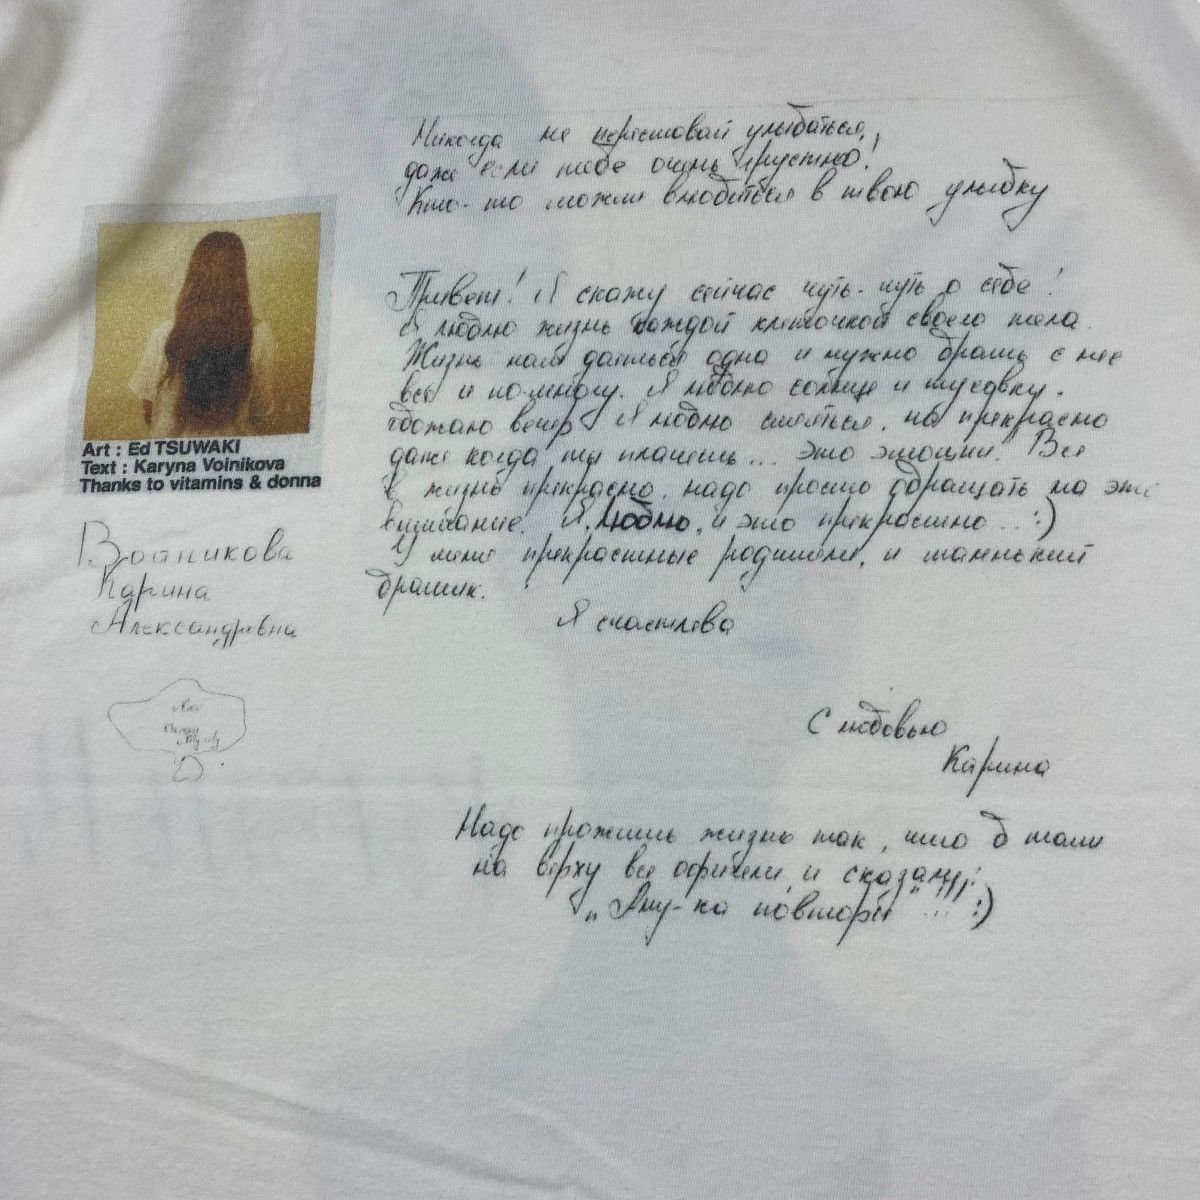 Никогда не переставай улыбаться,
даже если тебе очень грустно!
Кто-то может влюбиться в твою улыбку
Привет! Я скажу сейчас чуть-чуть о себе!
Я люблю жизнь каждой клеточкой своего тела.
Жизнь нам даёться одна и нужно брать с неё
всё и по-многу. Я люблю солнце и тусовку.
Обожаю вечер Я люблю смеяться, но прекрасно
даже когда ты плачешь... это эмоции! Всё
в жизнь прекрасно, надо просто обращать на это
внимание. Я люблю, и это прекрастно...:)
У меня прекрастные родители, и маленький
братик.
Я счастлева
С любовью
Карина
Надо прожить жизнь так, что б там
на верху все офигели и сказали:
„Ану-ка повтори" ... :)
Art : Ed TSUWAKI
Text : Karyna Voinikova
Thanks to vitamins & donna
Войникова
Карина
Александровна
Kiev
Kherson